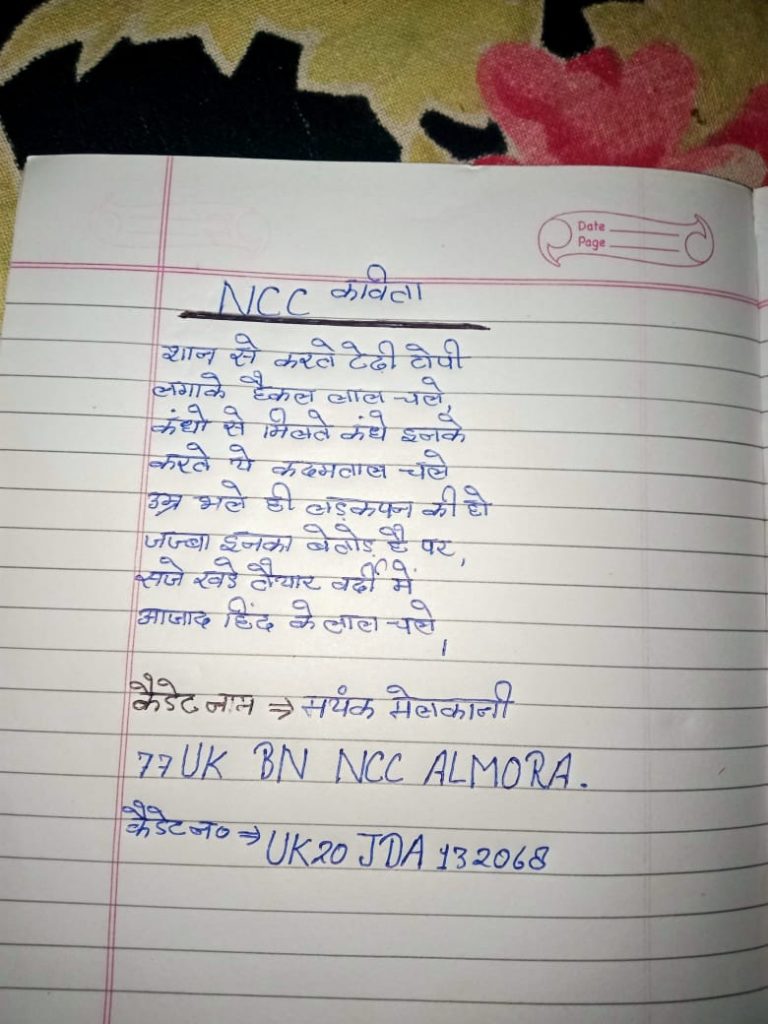 Date
Page
NCC कविता
शान से करते टेढी टोपी
लगाके हैकल लाल चले,
कंधो से मिलते कंधे इनके
करते ये कदमताल चले
उम्र भले ही लड़कपन की हो
जज्बा इनका बेतोड़ है पर,
सजे खडे तैयार वर्दी में
आजाद हिंद के लाल चले,
कैडेट नाम ⇒ मयंक मेलकानी
77UK BN NCC ALMORA.
कैडेट न० ⇒ UK20 JDA 132068